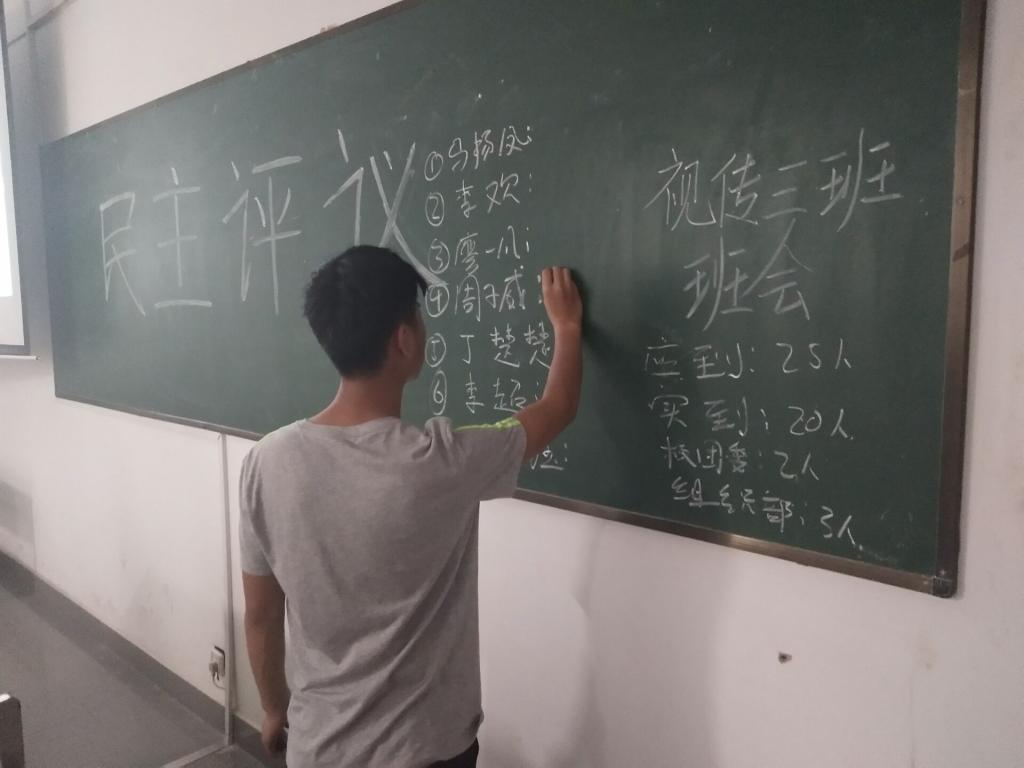 民主评议
①马扬凤:
②李欢:
③廖一凡:
④周子威:
⑤丁楚楚
⑥李超:
视传三班
班会
应到: 25人
实到: 20人
校团委: 2人
组织部: 3人